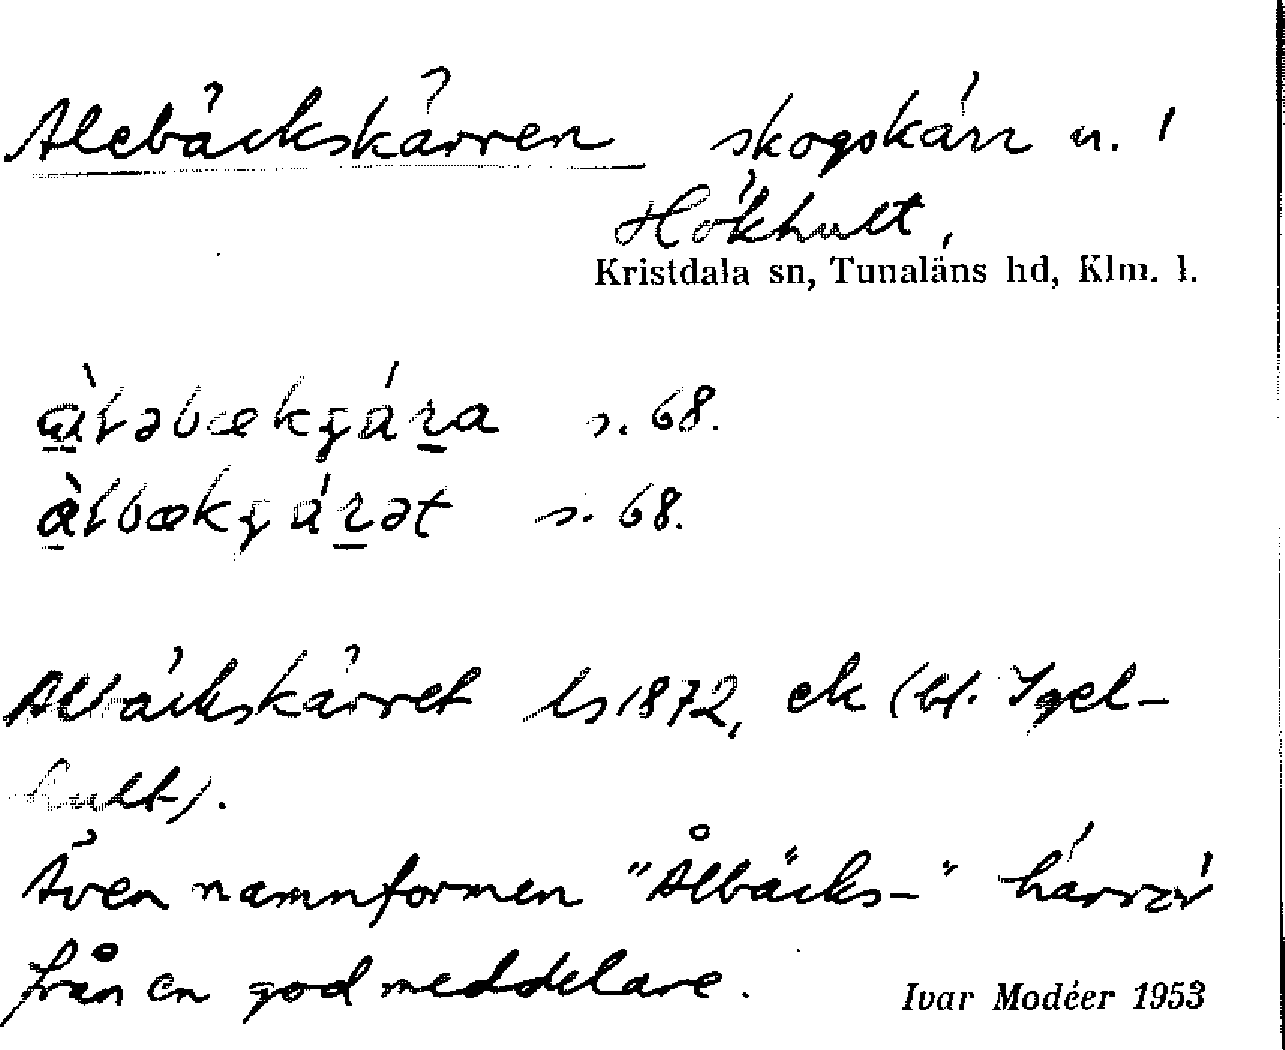 Alebäckskärren skogskärr u.
Hökhult,
Kristdala sn, Tunaläns hd, Klm. l.
s. 68.
s. 68.
Albäckskärret ls 1872, ek (bf. Igel-
hult).
Även namnformen "Ålbäcks-" härrör
från en god meddelare.
Ivar Modéer 1953